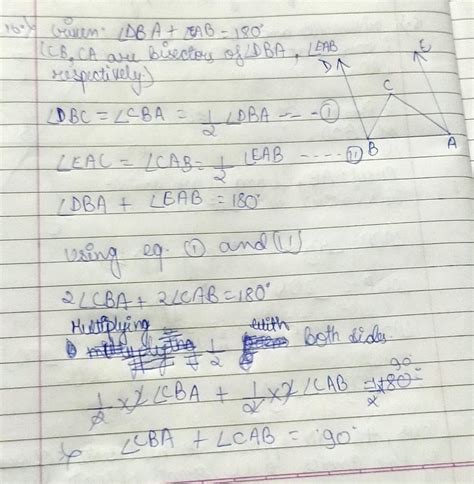 16.) Given: ∠DBA + EAB = 180°
(CB, CA are Bisectors of ∠DBA, ∠EAB
respectively)
D E
C
B A
∠DBC = ∠CBA = 1/2 ∠DBA --- ①
∠EAC = ∠CAB = 1/2 ∠EAB ---- ⑪
∠DBA + ∠EAB = 180°
using eq. ① and ⑪
2∠CBA + 2∠CAB = 180°
Multiplying 1/2 with Both sides.
1/2 × 2 ∠CBA + 1/2 × 2 ∠CAB = 1/2 × 180° 90
∠CBA + ∠CAB = 90°